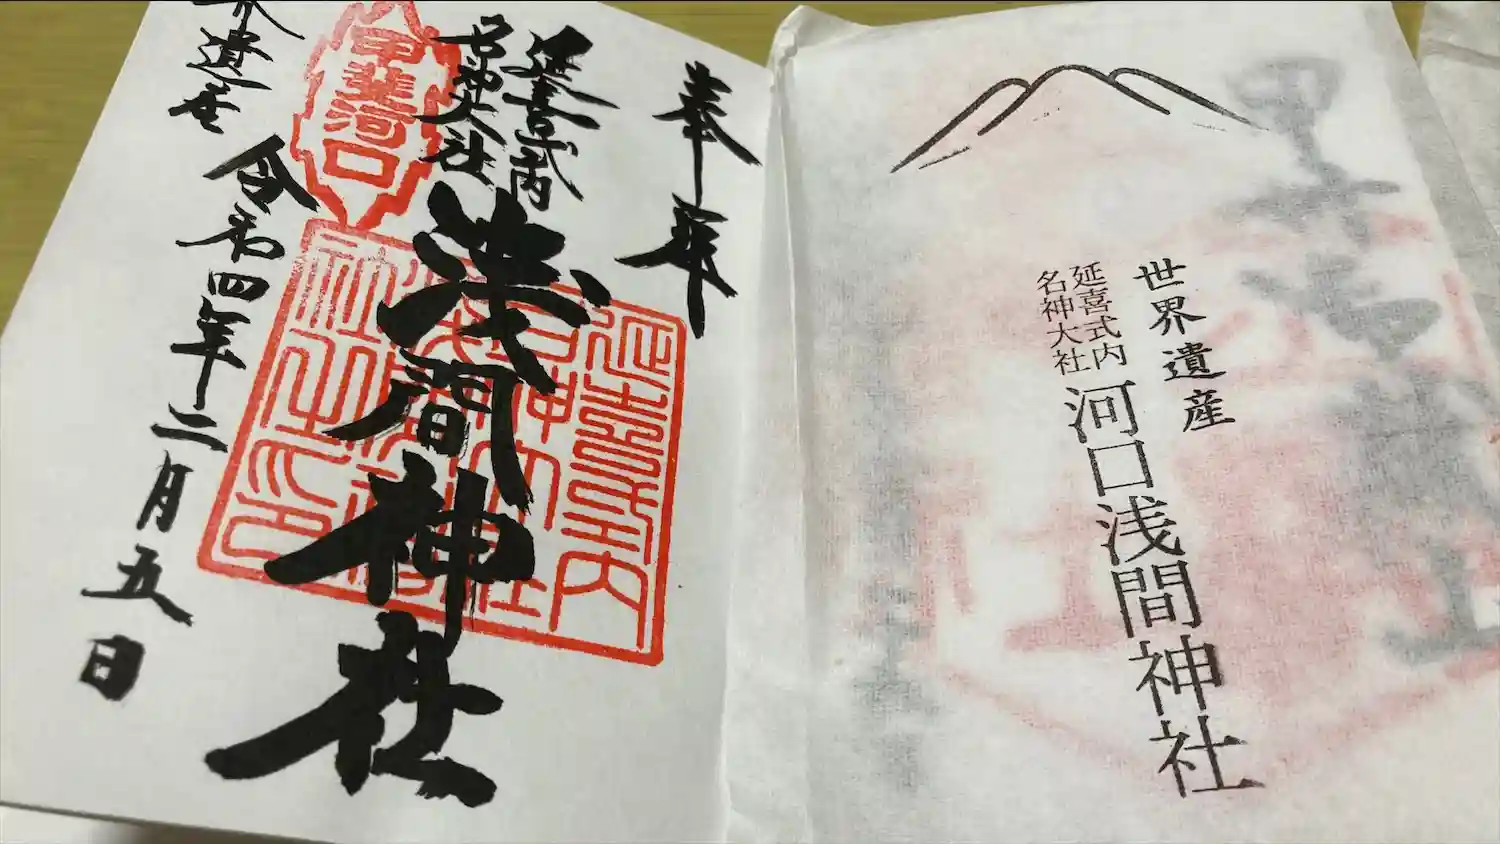 奉拝
延喜式内
名神大社
浅間神社
甲斐河口
延喜式内
名神大社
界遺産
令和四年二月五日
世界遺産
延喜式内
名神大社
河口浅間神社